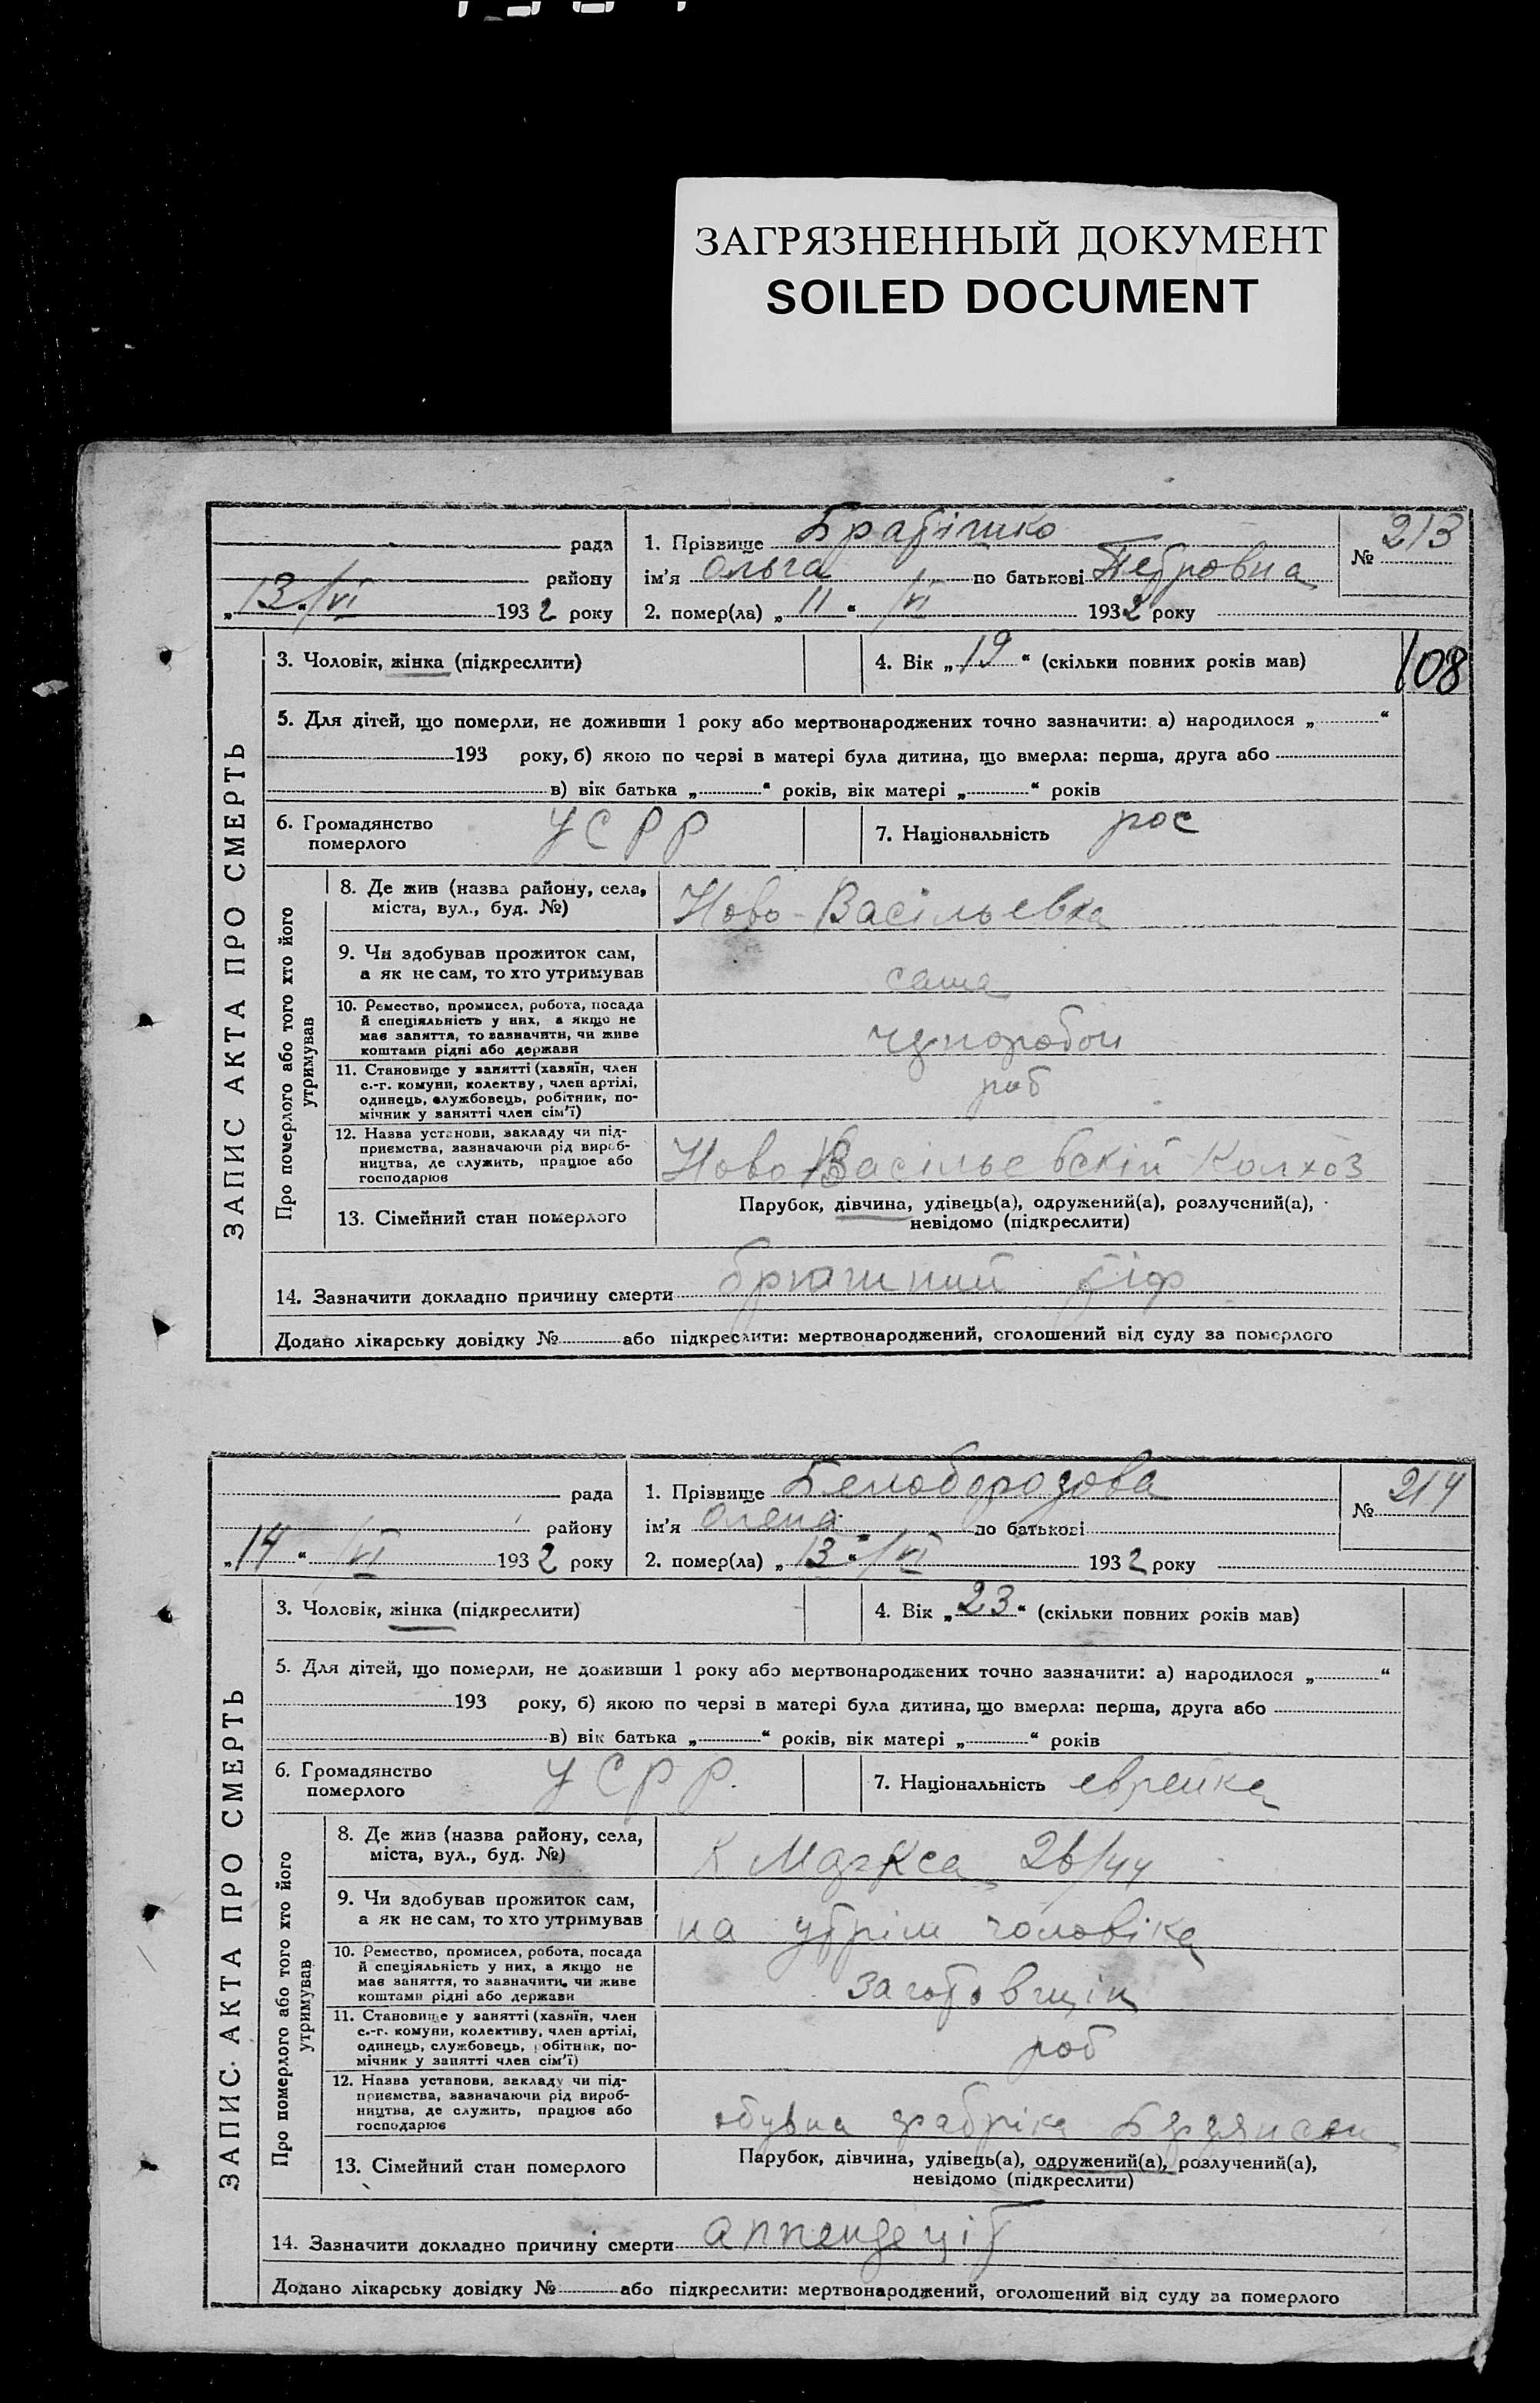 ЗАГРЯЗНЕННЫЙ ДОКУМЕНТ
SOILED DOCUMENT
108
ЗАПИС АКТА ПРО СМЕРТЬ
рада
району
„13“/VI 1932 року
1. Прізвище
ім'я Ольга по батькові Петровна
2. помер(ла) „11“ /VI 1932 року
№ 213
3. Чоловік, жінка (підкреслити)
4. Вік „19“ (скільки повних років мав)
5. Для дітей, що померли, не доживши 1 року або мертвонароджених точно зазначити: а) народилося „ “
193 року, б) якою по черзі в матері була дитина, що вмерла: перша, друга або
в) вік батька „ “ років, вік матері „ “ років
6. Громадянство
померлого УСРР
7. Національність рос
Про померлого або того хто його
утримував
8. Де жив (назва району, села,
міста, вул., буд. №) Ново-Васільевка
9. Чи здобував прожиток сам,
а як не сам, то хто утримував сама
10. Ремество, промисел, робота, посада
й спеціяльність у них, а якщо не
має заняття, то зазначити, чи живе
коштами рідні або держави
11. Становище у занятті (хазяїн, член
с.-г. комуни, колектву, член артілі,
одинець, службовець, робітник, по-
мічник у занятті член сім'ї) роб
12. Назва установи, закладу чи під-
приємства, зазначаючи рід вироб-
ництва, де служить, працює або
господарює Ново Васільевскій Колхоз
13. Сімейний стан померлого
Парубок, дівчина, удівець(а), одружений(а), розлучений(а),
невідомо (підкреслити)
14. Зазначити докладно причину смерти брюшний тіф
Додано лікарську довідку № або підкреслити: мертвонароджений, оголошений від суду за померлого
ЗАПИС АКТА ПРО СМЕРТЬ
рада
району
„14“ /VI 1932 року
1. Прізвище Белобородова
ім'я Олена по батькові
2. помер(ла) „13“ /VI 1932 року
№ 214
3. Чоловік, жінка (підкреслити)
4. Вік „23“ (скільки повних років мав)
5. Для дітей, що померли, не доживши 1 року або мертвонароджених точно зазначити: а) народилося „ “
193 року, б) якою по черзі в матері була дитина, що вмерла: перша, друга або
в) вік батька „ “ років, вік матері „ “ років
6. Громадянство
померлого УСРР.
7. Національність еврейка
Про померлого або того хто його
утримував
8. Де жив (назва району, села,
міста, вул., буд. №) К Маркса 26/44
9. Чи здобував прожиток сам,
а як не сам, то хто утримував на утрім чоловіка
10. Ремество, промисел, робота, посада
й спеціяльність у них, а якщо не
має заняття, то зазначити, чи живе
коштами рідні або держави заготовщік
11. Становище у занятті (хазяїн, член
с.-г. комуни, колективу, член артілі,
одинець, службовець, робітник, по-
мічник у занятті член сім'ї) роб
12. Назва установи, закладу чи під-
приємства, зазначаючи рід вироб-
ництва, де служить, працює або
господарює обувна фабріка
13. Сімейний стан померлого
Парубок, дівчина, удівець(а), одружений(а), розлучений(а),
невідомо (підкреслити)
14. Зазначити докладно причину смерти аппендеціт
Додано лікарську довідку № або підкреслити: мертвонароджений, оголошений від суду за померлого